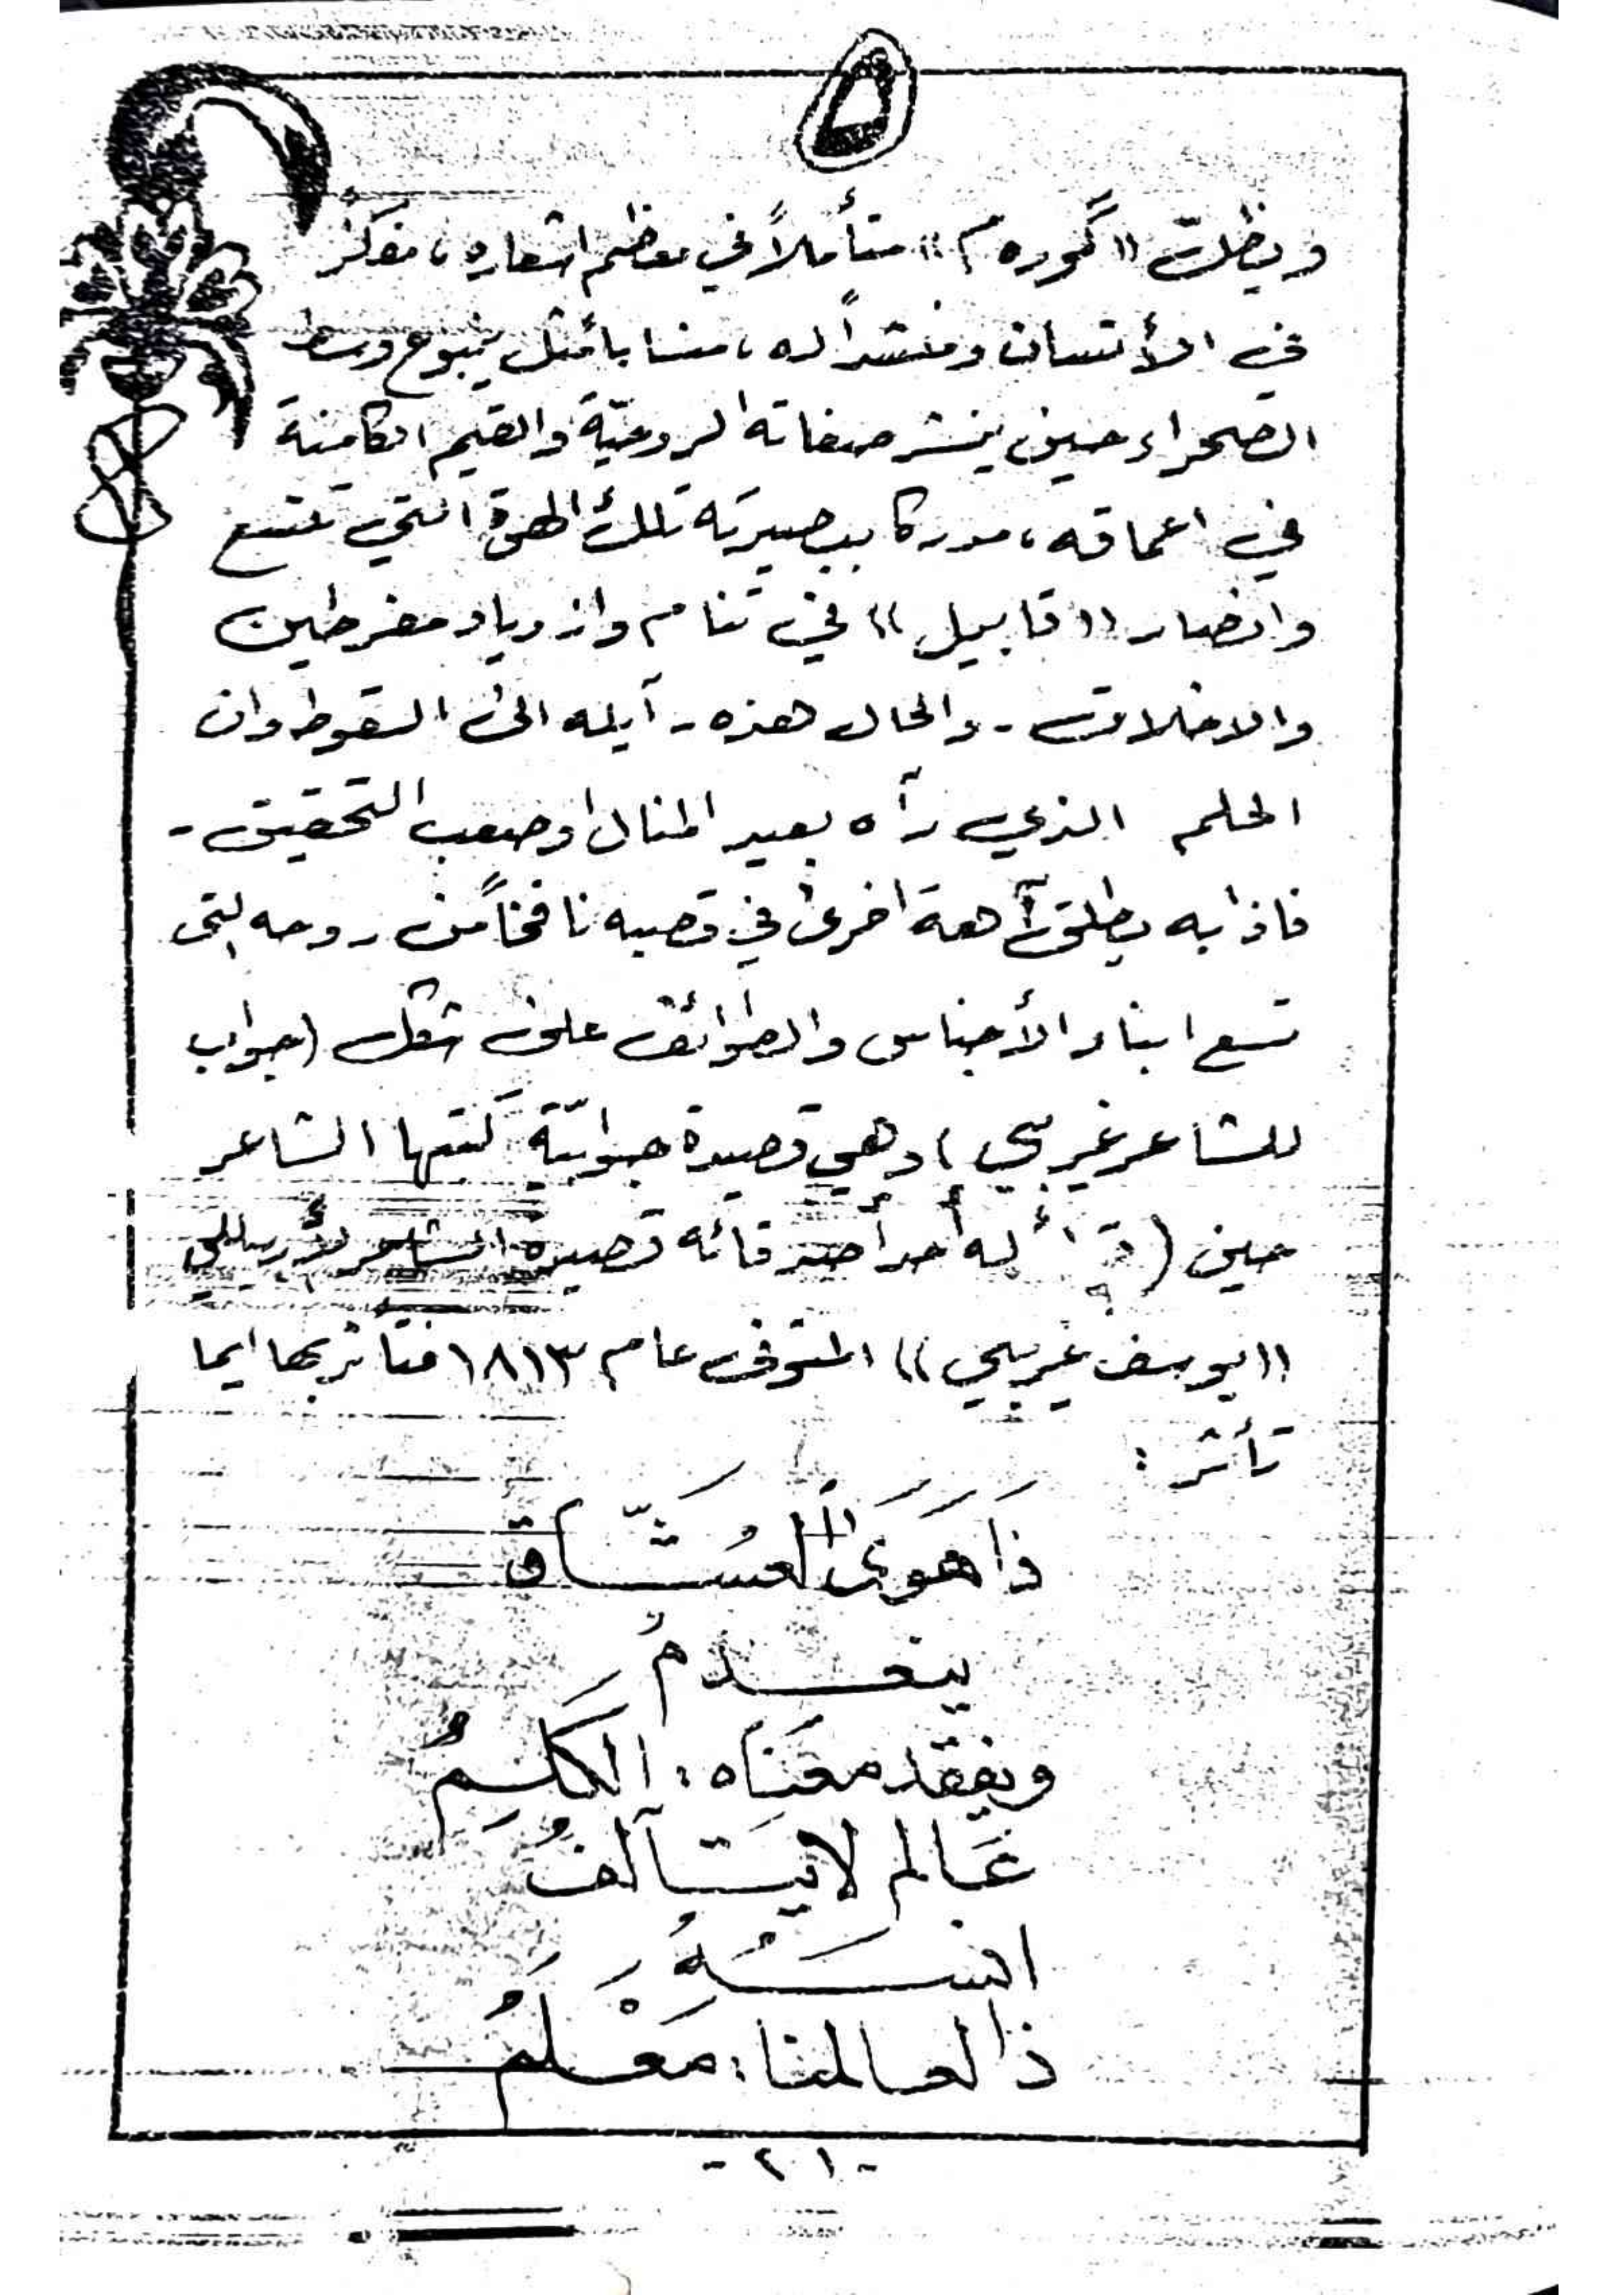 ويظل «گوره م» متأملاً في معظم اشعاره، مفكر
في الأنسان ومنشداً له، منسابا مثل ينبوع وسط
الصحراء حين ينشر صفاته الروحيّة والقيم الكامنة
في اعماقه، مدركا ببصيرته تلك الهوة التي تتسع
وانصار «قابيل» في تنام وازدياد مفرطين
والاخلاق - والحال هذه - آيلة الى السقوط وان
الحلم الذي رآه بعيد المنال او صعب التحقيق -
فاذا به يطلق آهة اخرى في قصبه نافخاً من روحه التي
تسع ابناء الأجناس والطوائف على شكل (جواب
للشاعر غريبي) وهي قصيدة جوابيّة كتبها الشاعر
حين (قرأ له أحد أصدقائه قصيدة الشاعر الأربيللي
«يوسف غريبي» المتوفى عام ١٨١٣ فتاثر بها ايما
تأثر :
ذَا هَوَى العُشَّاق
ينعدمُ
ويفقد معنَاه: الكَلِمُ
عَالم لا يَتآلفُ
انسَهُ
ذا لعالمنا: مَعْلَمُ
-٢١-